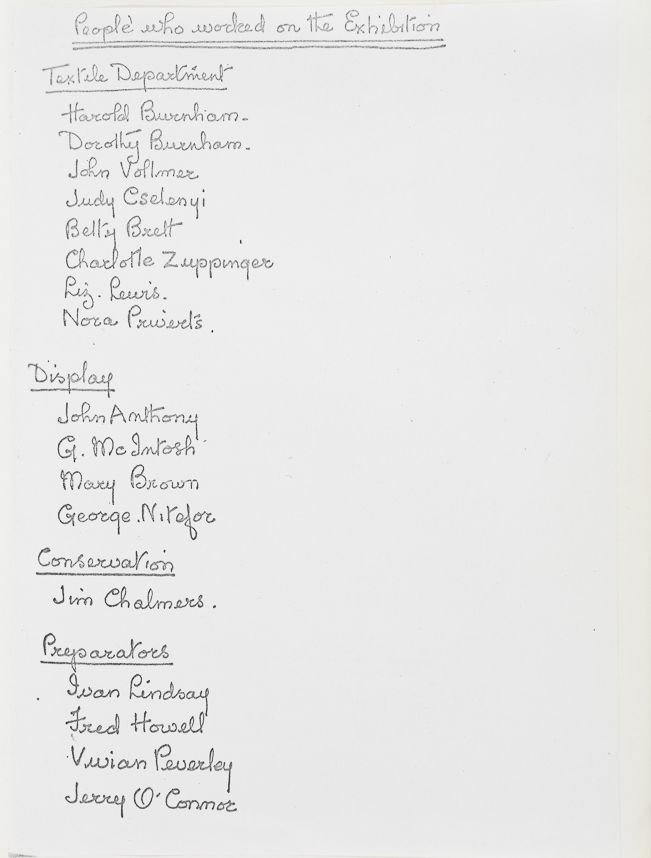 People who worked on the Exhibition
Textile Department
Harold Burnham.
Dorothy Burnham.
John Vollmer
Judy Cselenyi
Betty Brett
Charlotte Zuppinger
Liz. Lewis.
Nora Priverts.
Display
John Anthony
G. McIntosh
Mary Brown
George. Nikefor
Conservation
Jim Chalmers.
Preparators
Ivan Lindsay
Fred Howell
Vivian Peverley
Jerry O'Connor